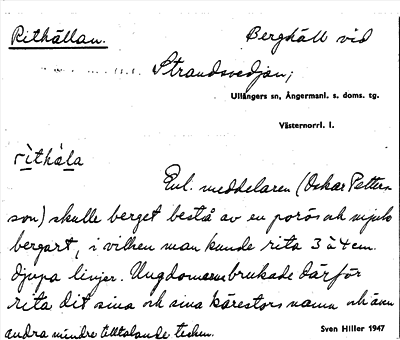 Rithällan.
Berghäll vid
Strandsvedjan;
Ullångers sn, Ångermanl. s. doms. tg.
Västernorrl. l.
rìthàla
Enl. meddelaren (Oskar Petters-
son) skulle berget bestå av en porös och mjuk
bergart, i vilken man kunde rita 3 à 4 cm.
djupa linjer. Ungdomen brukade därför
rita dit sina och sina kärestors namn och även
andra mindre tilltalande tecken.
Sven Hiller 1947